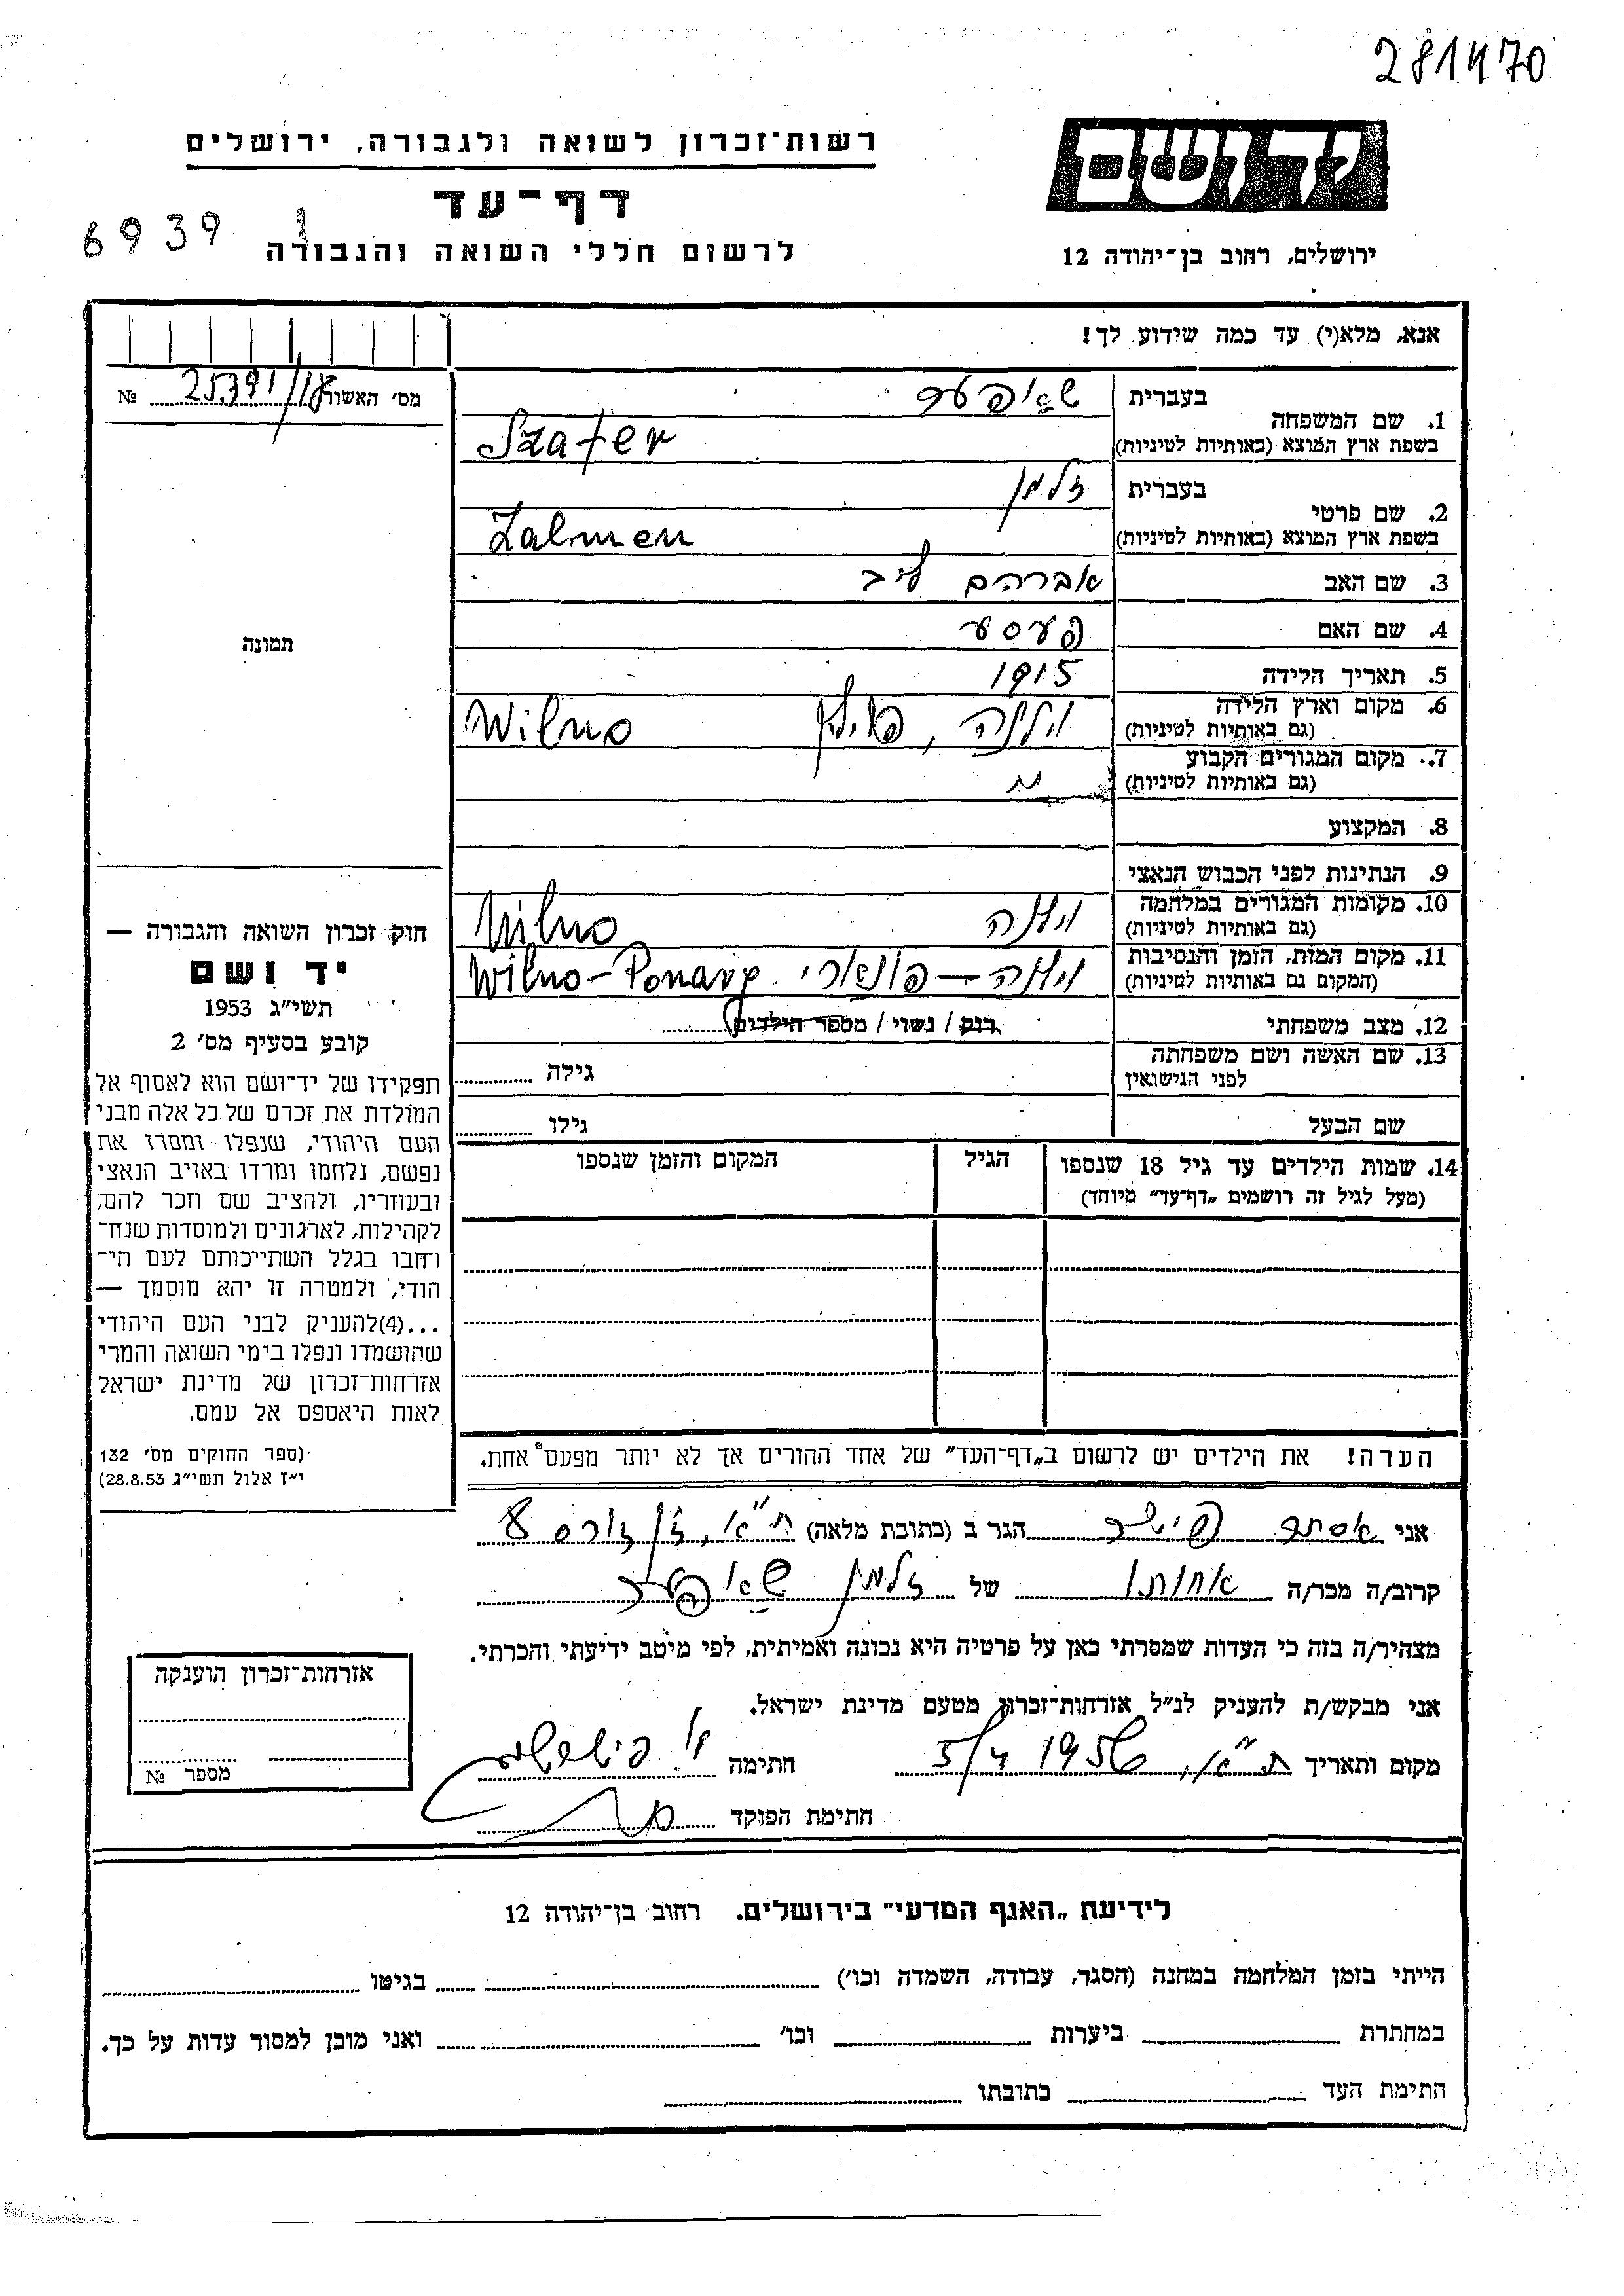 281470
רשות־זכרון לשואה ולגבורה, ירושלים
יד ושם
דף־עד
6939
לרשום חללי השואה והגבורה
ירושלים, רחוב בן־יהודה 12
אנא, מלא(י) עד כמה שידוע לך!
מס' האשור 25391/18 №
תמונה
1. שם המשפחה בעברית שאפער
בשפת ארץ המוצא (באותיות לטיניות) Szafer
2. שם פרטי בעברית זלמן
בשפת ארץ המוצא (באותיות לטיניות) Zalmen
3. שם האב אברהם לייב
4. שם האם פעסע
5. תאריך הלידה 1915
6. מקום וארץ הלידה (גם באותיות לטיניות) וילנה, פוילן Wilno
7. מקום המגורים הקבוע (גם באותיות לטיניות)
8. המקצוע
9. הנתינות לפני הכבוש הנאצי
10. מקומות המגורים במלחמה (גם באותיות לטיניות) וילנה Wilno
11. מקום המות, הזמן והנסיבות (המקום גם באותיות לטיניות) וילנה – פונארי Wilno - Ponary
12. מצב משפחתי רוק / נשוי / מספר הילדים
13. שם האשה ושם משפחתה לפני הנישואין גילה
שם הבעל גילו
14. שמות הילדים עד גיל 18 שנספו הגיל המקום והזמן שנספו
(מעל לגיל זה רושמים „דף־עד״ מיוחד)
חוק זכרון השואה והגבורה —
יד ושם
תשי״ג 1953
קובע בסעיף מס' 2
תפקידו של יד־ושם הוא לאסוף אל
המולדת את זכרם של כל אלה מבני
העם היהודי, שנפלו ומסרו את
נפשם, נלחמו ומרדו באויב הנאצי
ובעוזריו, ולהציב שם וזכר להם,
לקהילות, לארגונים ולמוסדות שנח־
רחבו בגלל השתייכותם לעם הי־
הודי, ולמטרה זו יהא מוסמך —
...(4)להעניק לבני העם היהודי
שהושמדו ונפלו בימי השואה והמרי
אזרחות־זכרון של מדינת ישראל
לאות היאספם אל עמם.
(ספר החוקים מס' 132
י״ז אלול תשי״ג 28.8.53)
הערה! את הילדים יש לרשום ב„דף־העד״ של אחד ההורים אך לא יותר מפעם אחת.
אני אסתר הגר ב (כתובת מלאה) ת״א,
קרוב/ה מכר/ה אחותו של זלמן שאפער
מצהיר/ה בזה כי העדות שמסרתי כאן על פרטיה היא נכונה ואמיתית, לפי מיטב ידיעתי והכרתי.
אני מבקש/ת להעניק לנ״ל אזרחות־זכרון מטעם מדינת ישראל.
מקום ותאריך ת״א, 5/4 1956 חתימה
חתימת הפוקד
אזרחות־זכרון הוענקה
מספר №
לידיעת „האגף המדעי״ בירושלים. רחוב בן־יהודה 12
הייתי בזמן המלחמה במחנה (הסגר, עבודה, השמדה וכו') בגיטו
במחתרת ביערות וכו' ואני מוכן למסור עדות על כך.
חתימת העד כתובתו